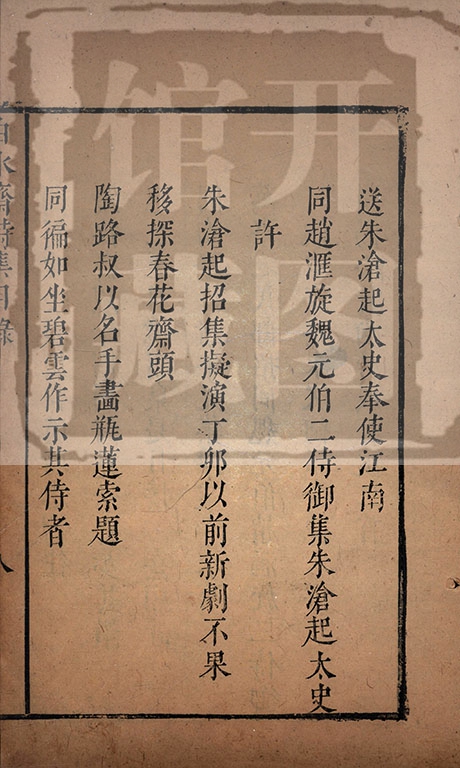 送朱滄起太史奉使江南
同趙滙旋魏元伯二侍御集朱滄起太史
許
朱滄起招集擬演丁卯以前新劇不果
移探春花齋頭
陶路叔以名手畫瓶蓮索題
同徧如坐碧雲作示其侍者
白水齋詩集目錄
開
图
馆
藏